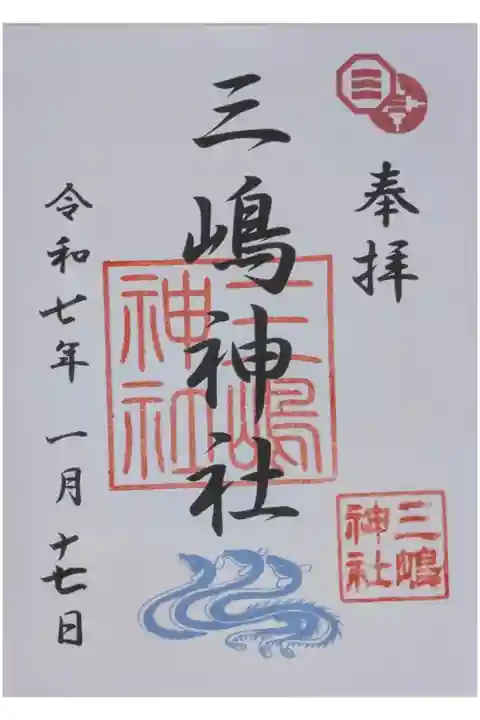 奉拝
三嶋神社
三嶋
神社
三嶋
神社
令和七年 一月 十七日